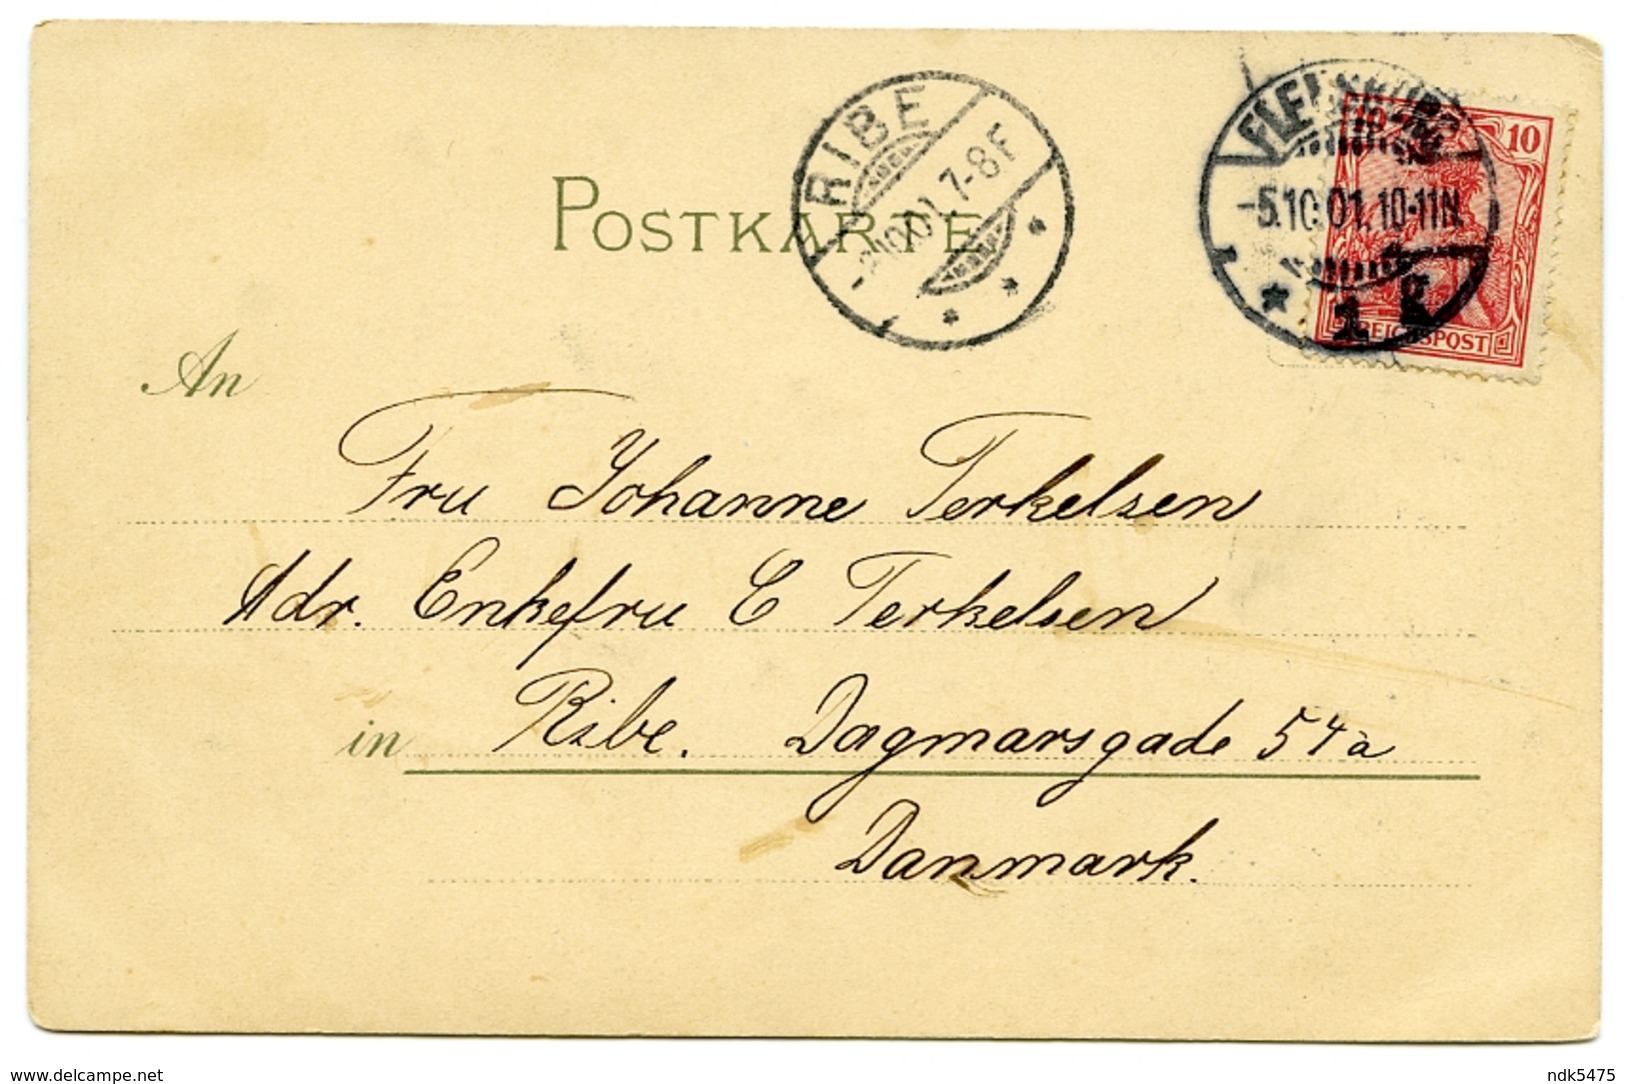 POSTKARTE
RIBE
10.01. 7-8 F
FLENSBURG
-5.10.01. 10-11N.
10
REICHSPOST
An
Fru Johanne Terkelsen
Adr. Enkefru C Terkelsen
in Ribe. Dagmarsgade 54a
Danmark.
www.delcampe.net
ndk5475